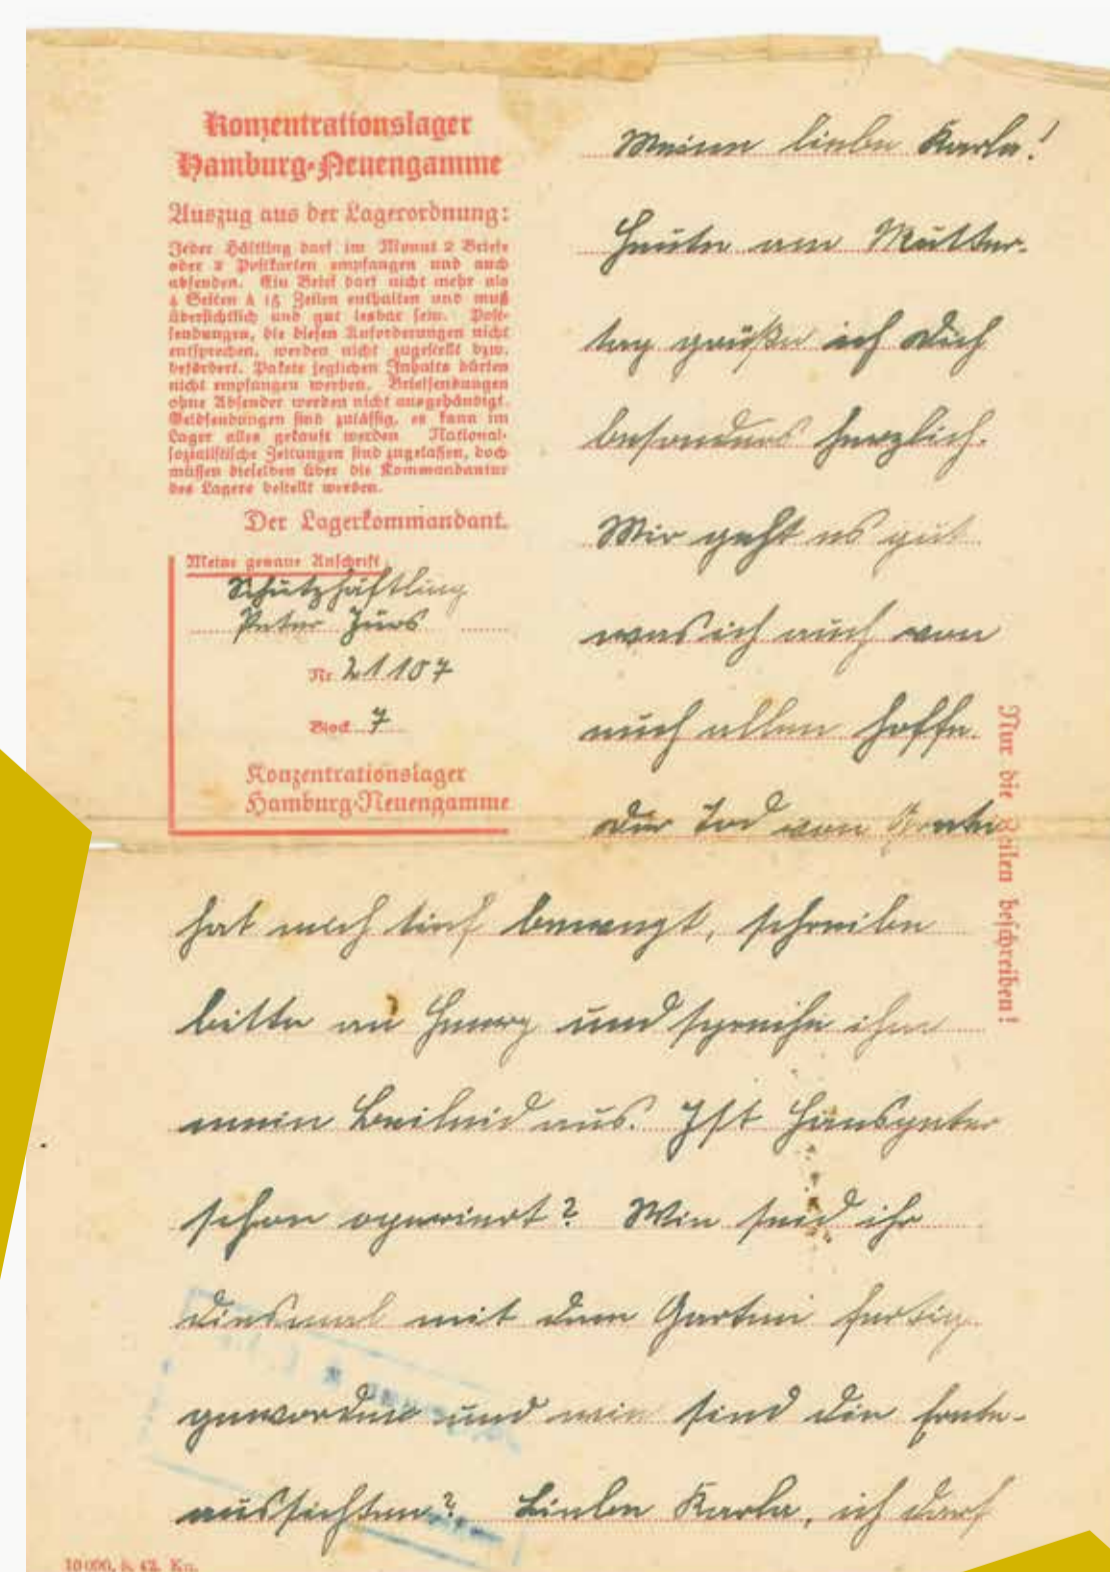 Konzentrationslager
Hamburg-Neuengamme
Auszug aus der Lagerordnung:
Jeder Häftling darf im Monat 2 Briefe
oder 2 Postkarten empfangen und auch
absenden. Ein Brief darf nicht mehr als
4 Seiten à 15 Zeilen enthalten und muß
übersichtlich und gut lesbar sein. Post-
sendungen, die diesen Anforderungen nicht
entsprechen, werden nicht zugestellt bzw.
befördert. Pakete jeglichen Inhalts dürfen
nicht empfangen werden. Briefsendungen
ohne Absender werden nicht ausgehändigt.
Geldsendungen sind zulässig, es kann im
Lager alles gekauft werden National-
sozialistische Zeitungen sind zugelassen, doch
müssen dieselben über die Kommandantur
des Lagers bestellt werden.
Der Lagerkommandant.
Meine genaue Anschrift
Schutzhäftling
Peter Jürs
Nr. 21107
Block 7
Konzentrationslager
Hamburg-Neuengamme
Meine liebe Karla!
Heute am Mutter-
tag grüße ich Dich
besonders herzlich.
Mir geht es gut
was ich auch von
euch allen hoffe.
Der Tod von
hat mich tief bewegt, schreibe
bitte an und spreche ihm
mein Beileid aus. Ist Hanspeter
schon operiert? Wie seid ihr
diesmal mit dem Garten fertig
geworden und wie sind die Ernte-
aussichten? Liebe Karla, ich darf
Nur die Zeilen beschreiben!
10 000. 5. 42. Kn.